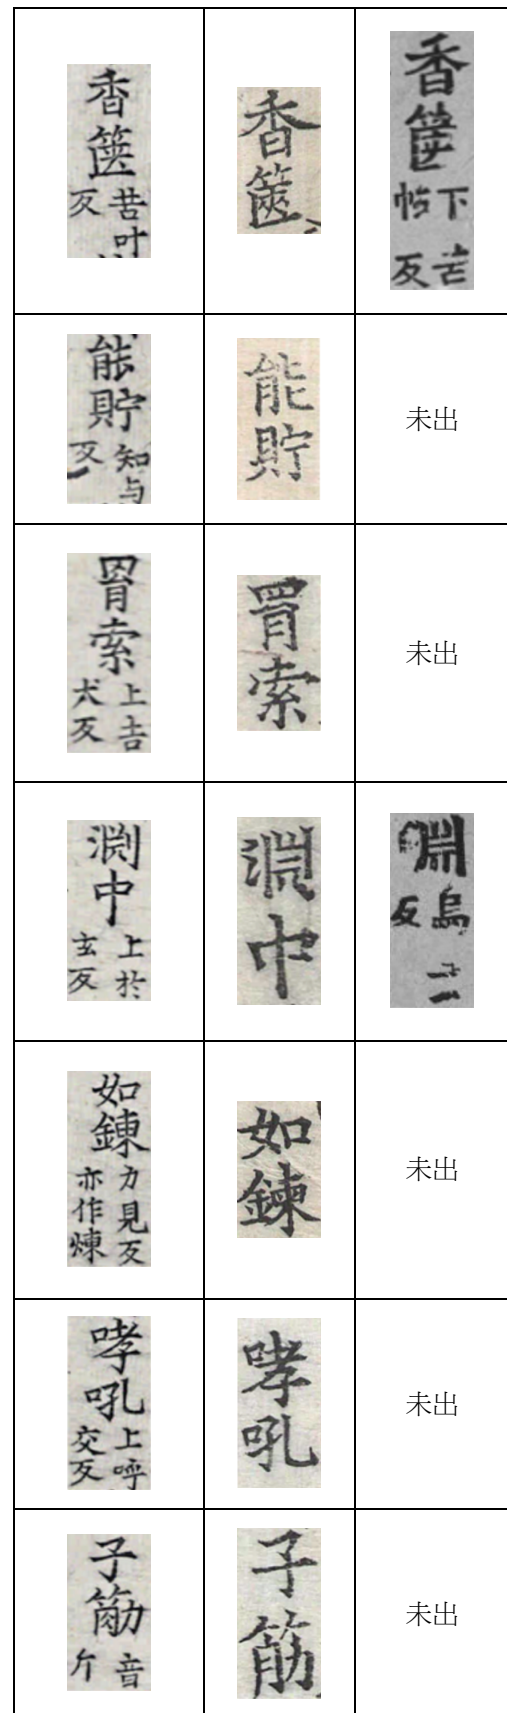 香篋苦叶反
香篋
香篋下苦帖反
能貯知与反
能貯
未出
罥索上古犬反
罥索
未出
渕中上於玄反
渕中
淵烏
反
如鍊力見反亦作煉
如鍊
未出
哮吼上呼交反
哮吼
未出
子筋音斤
子筋
未出